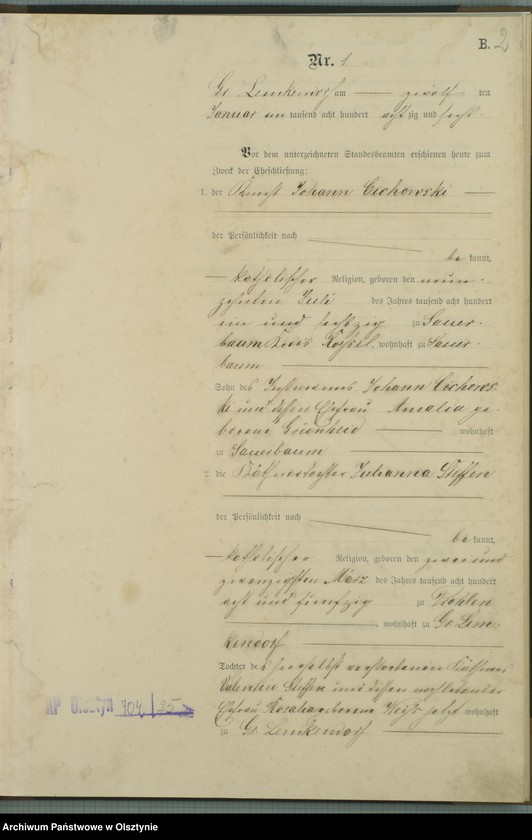 B. 2
Nr. 1
Gr. Lemkendorf am — zwölf ten
Januar ein tausend acht hundert acht zig und sechs.
Vor dem unterzeichneten Standesbeamten erschienen heute zum
Zweck der Eheschließung:
1. der Knecht Johann Cichowski —
der Persönlichkeit nach
be kannt,
— katholischer Religion, geboren den neun-
zehnten Juli des Jahres tausend acht hundert
ein und sechszig zu Sauer-
baum Kreis Rössel, wohnhaft zu Sauer-
baum
Sohn des Instmanns Johann Cichows-
ki und dessen Ehefrau Amalia ge-
borene wohnhaft
zu Sauerbaum
2. die Käthnertochter Julianna Steffen
der Persönlichkeit nach
be kannt,
— katholischer Religion, geboren den zwei und
zwanzigsten März des Jahres tausend acht hundert
acht und fünfzig zu
, wohnhaft zu Gr. Lem-
kendorf
Tochter des hierselbst verstorbenen Käthners
Valentin Steffen und dessen
Ehefrau Rosalia geborene jetzt wohnhaft
zu Gr. Lemkendorf
AP Olsztyn 704/25
Archiwum Państwowe w Olsztynie